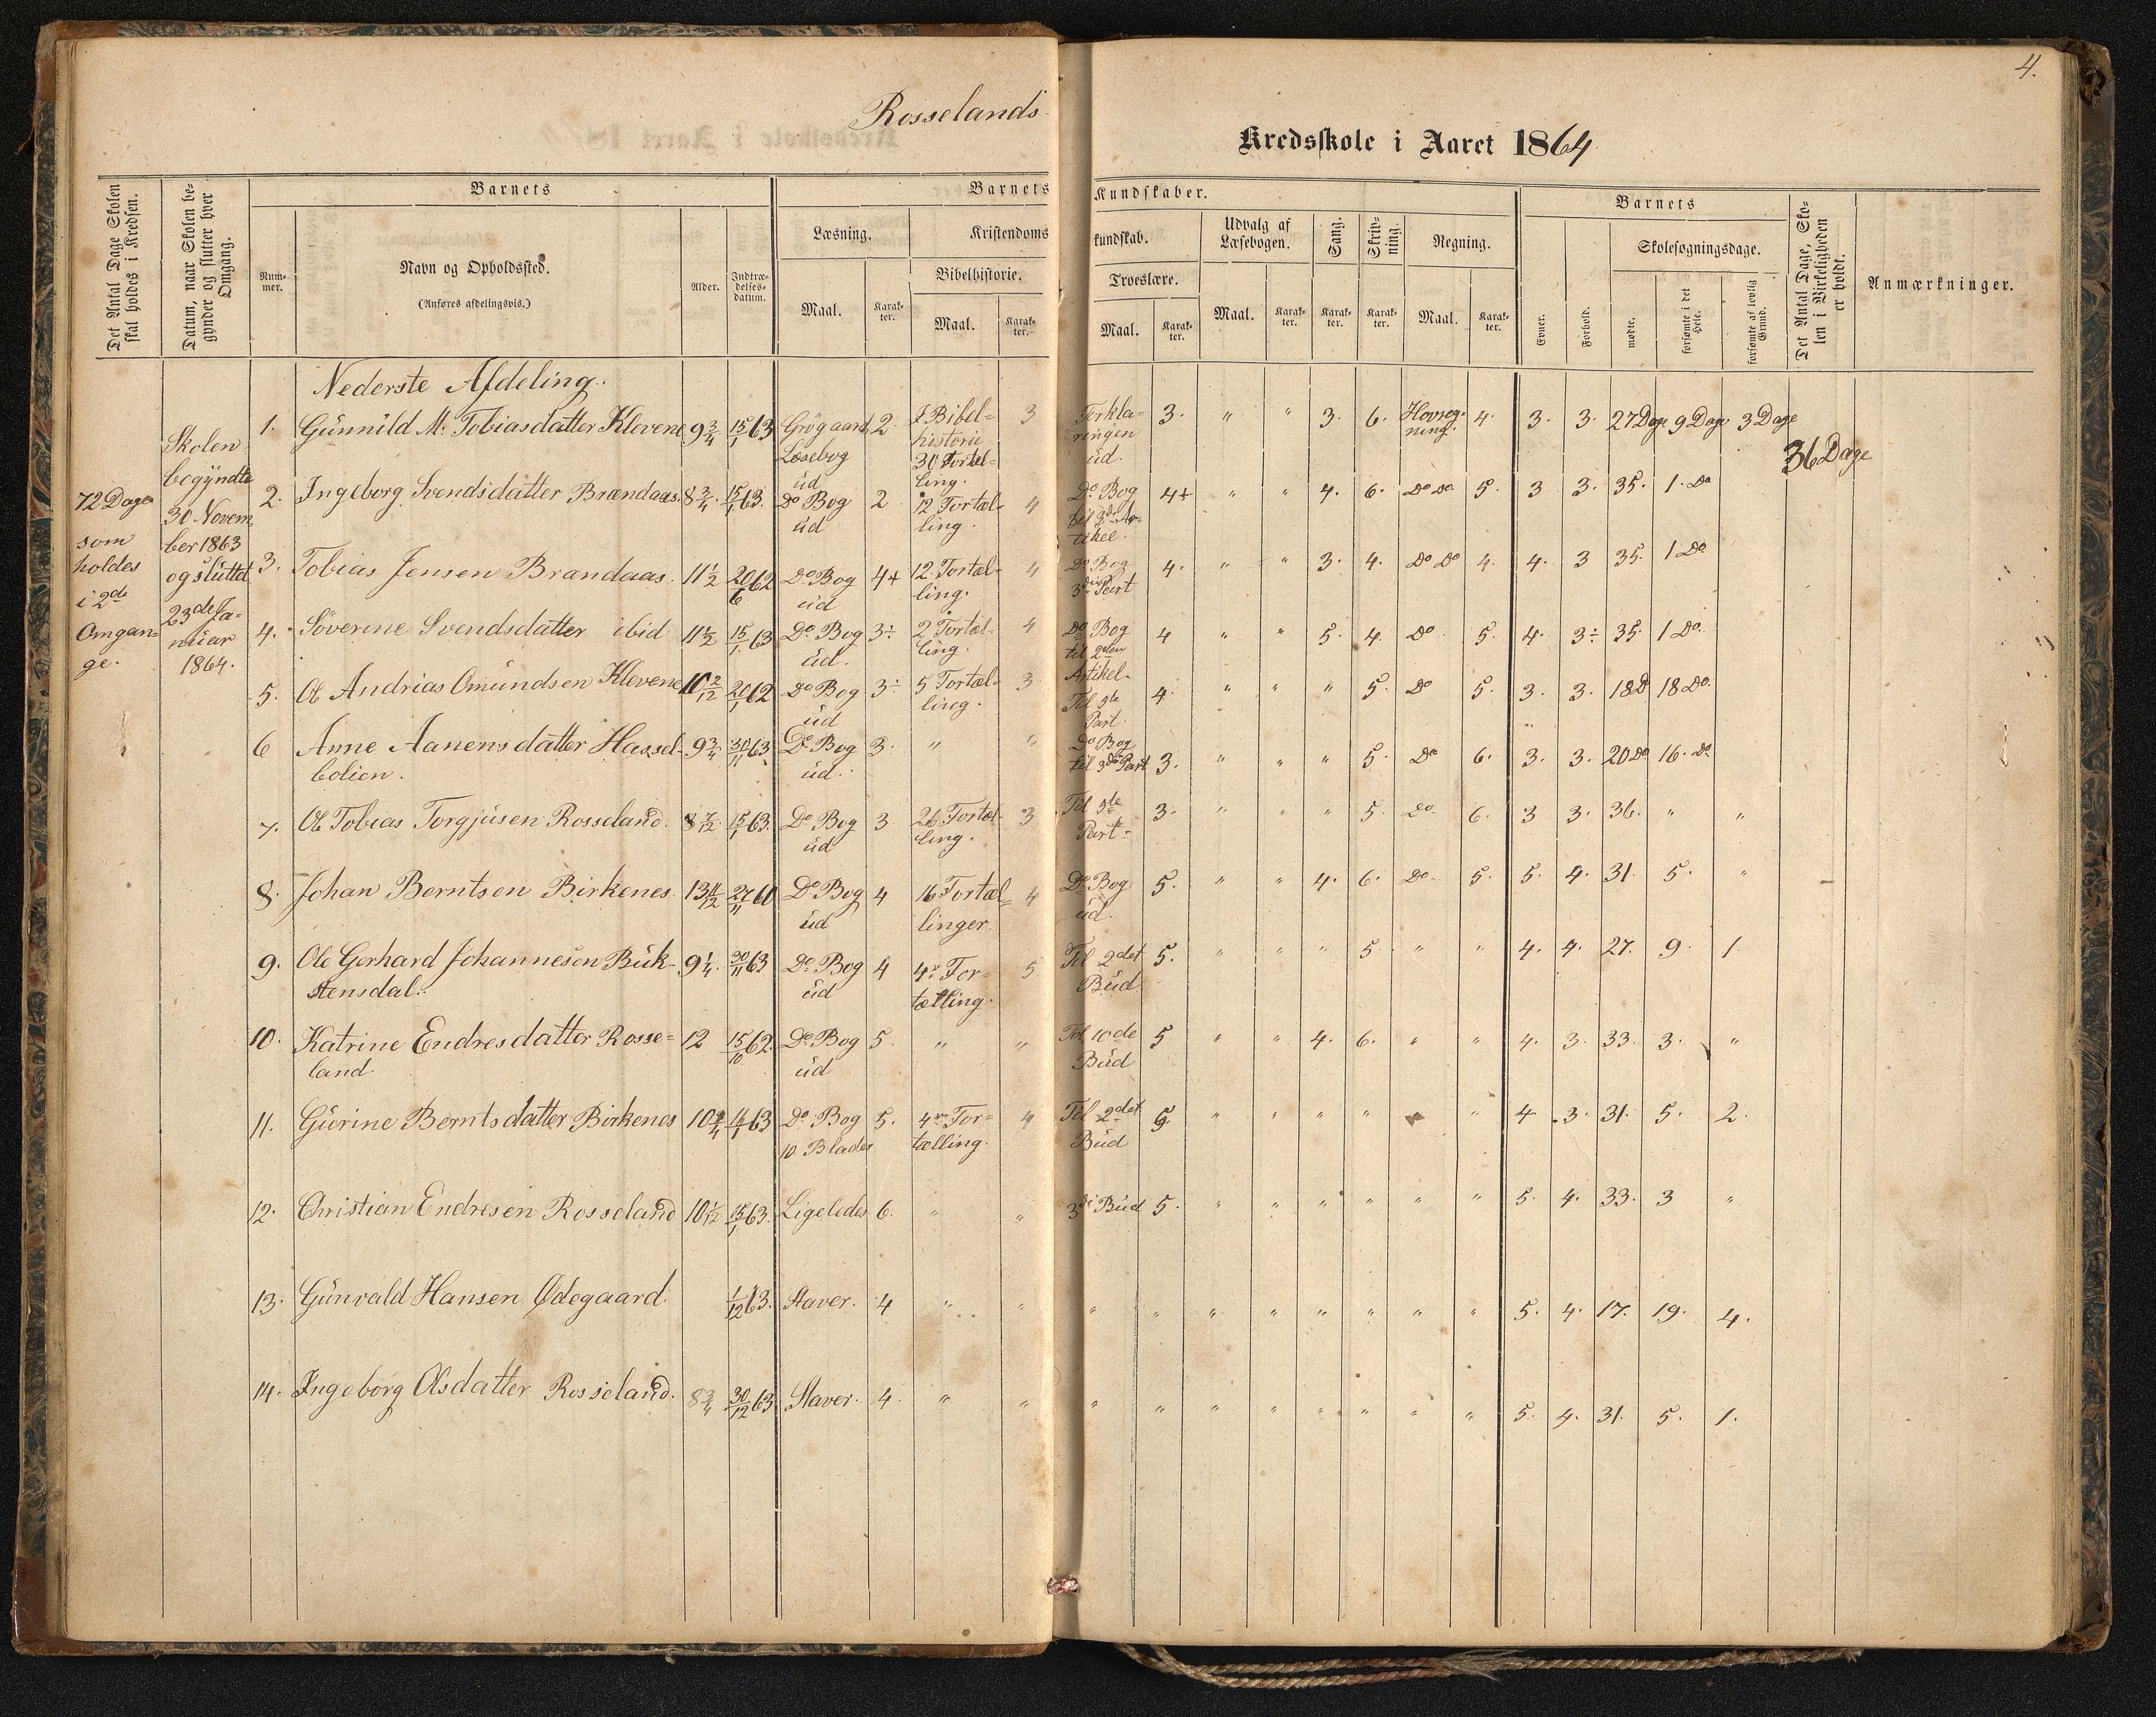 4.
Rosselands
Kredsskole i Aaret 1864
Det Antal Dage Skolen skal holdes i Kredsen.
Datum, naar Skolen begynder og slutter hver Omgang.
Barnets
Nummer.
Navn og Opholdssted.
(Anføres afdelingsvis.)
Alder.
Indtrædelsesdatum.
Barnets Kundskaber.
Læsning.
Maal.
Karakter.
Kristendomskundskab.
Bibelhistorie.
Maal.
Karakter.
Troeslære.
Maal.
Karakter.
Udvalg af Læsebogen.
Maal.
Karakter.
Sang.
Karakter.
Skrivning.
Karakter.
Regning.
Maal.
Karakter.
Barnets
Evner.
Forhold.
Skolesøgningsdage.
mødte.
forsømte i det Hele.
forsømte af lovlig Grund.
Det Antal Dage, Skolen i Virkeligheden er holdt.
Anmærkninger.
72 Dage
som
holdes
i 2de
Omgange.
Skolen
begyndte
30 Novem
ber 1863
og sluttet
23de Ja-
nuar
1864.
Nederste Afdeling.
1. Günnild M. Tobiasdatter Klevene 9 3/4 15/1 63 Grögaards Læsebog ud 2. I Bibel= historie 30 Fortel= ling. 3 Forkla= ringen ud. 3. " " 3. 6. Hovreg= ning. 4. 3. 3. 27 Dage 9 Dage 3 Dage 36 Dage
2. Ingeborg Svendsdatter Brændaas. 8 3/4 15/1 63. Do Bog ud 2 12 Fortæl= ling. 4 Do Bog til 3die Ar= tikel. 4+ " " 4. 6. Do Do 5. 3 3. 35. 1. Do
3. Tobias Jensen Brændaas. 11 1/2 20/6 62 Do Bog ud 4+ 12. Fortæl= ling. 4 Do Bog 3die Part 4. " " 3. 4. Do Do 4. 4. 3 35. 1 Do
4. Söverine Svendsdatter ibid 11 1/2 15/1 63 Do Bog ud. 3÷ 2 Fortæl= ling. 4 Do Bog til 2den Artikel. 4 " " 5. 4. Do 5. 4. 3÷ 35. 1 Do.
5. Ole Andrias Omündsen Klevene 10 2/12 20/1 62 Do Bog ud 3÷ 5 Fortæl= ling. 3 Til 3te Part. 4. " " " 5. Do 5. 3. 3. 18 D 18 Do.
6 Anne Aanensdatter Hassel= bolien. 9 3/4 30/11 63. Do Bog ud. 3. " " Do Bog til 3die Part 3. " " " 5. Do 6. 3. 3. 20 Do 16. Do.
7. Ole Tobias Torgjüsen Rosseland. 8 7/12 15/1 63. Do Bog ud 3 26 Fortæl= ling. 3 Til 3te Part 3. " " " 5. Do 6. 3 3. 36. " "
8. Johan Berntsen Birkenes. 13 11/12 27/11 60 Do Bog ud 4 16 Fortæl= linger. 4 Do Bog ud. 5. " " 4. 6. Do 5. 5. 4. 31. 5. "
9. Ole Gerhard Johannesen Bük- stensdal. 9 1/4. 30/11 63 Do Bog ud 4 4re For= tælling. 5 Til 2det Bud 5. " " " 5. " " 4. 4. 27. 9. 1.
10. Katrine Endresdatter Rosse= land. 12 15/10 62. Do Bog ud 5. " " Til 10de Bud 5 " " 4. 6. " " 4. 3. 33. 3. "
11. Gürine Berntsdatter Birkenes 10 3/4 63 Do Bog 10 Blades 5. 4re For= tælling. 4 Til 2det Bud 5 " " " " " 4 3. 31. 5. 2.
12. Christian Endresen Rosseland 10 1/12 15/1 63. Ligeledes 6. " " 3die Bud 5. " " " " " " 5. 4. 33. 3 "
13. Günvald Hansen Ødegaard 1/12 63. Staver. 4 " " " " " " " " " " 5. 4. 17. 19. 4.
14. Ingeborg Olsdatter Rosseland. 8 3/4 30/12 63 Staver. 4. " " " " " " " " " " 5. 4. 31. 5. 1.